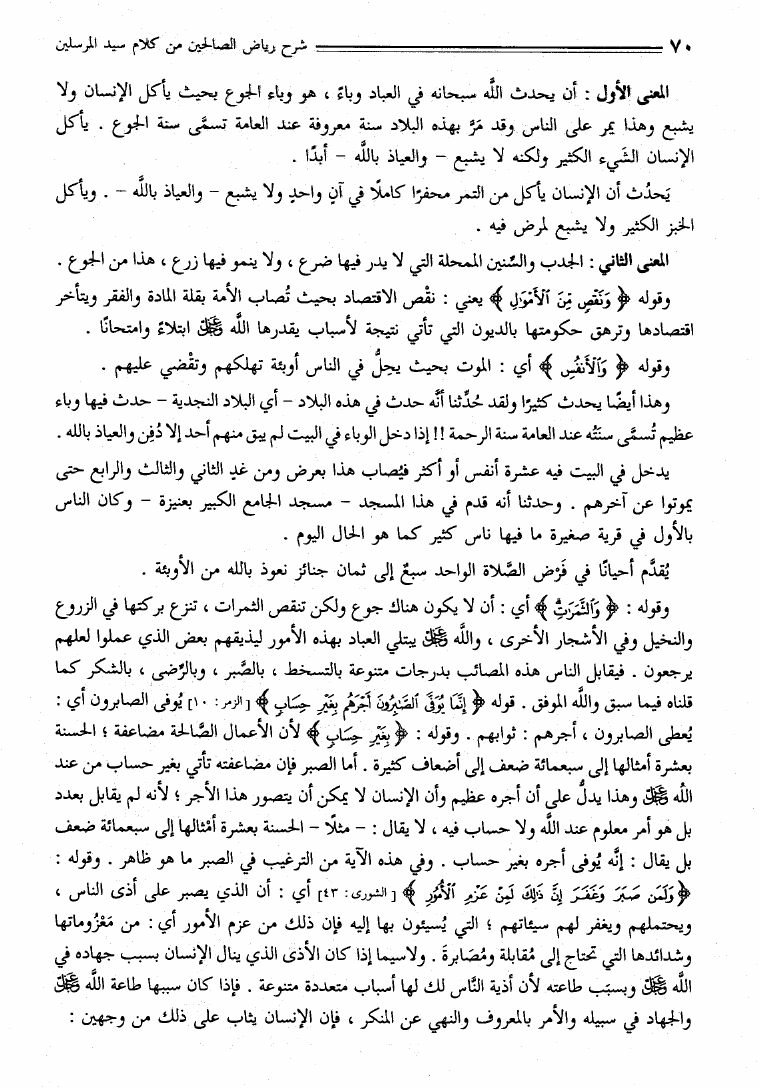 ٧٠ شرح رياض الصالحين من كلام سيد المرسلين
المعنى الأول : أن يحدث اللَّه سبحانه في العباد وباءً ، هو وباء الجوع بحيث يأكل الإنسان ولا
يشبع وهذا يمر على الناس وقد مَرَّ بهذه البلاد سنة معروفة عند العامة تسمَّى سنة الجوع . يأكل
الإنسان الشَيء الكثير ولكنه لا يشبع – والعياذ باللَّه – أبدًا .
يَحدُث أن الإنسان يأكل من التمر محفرًا كاملًا في آنٍ واحدٍ ولا يشبع – والعياذ باللَّه – . ويأكل
الخبز الكثير ولا يشبع لمرض فيه .
المعنى الثاني : الجدب والسِّنين الممحلة التي لا يدر فيها ضرع ، ولا ينمو فيها زرع ، هذا من الجوع .
وقوله ﴿ وَنَقْصٍ مِّنَ ٱلْأَمْوَٰلِ ﴾ يعني : نقْص الاقتصاد بحيث تُصاب الأمة بقلة المادة والفقر ويتأخر
اقتصادها وترهق حكومتها بالديون التي تأتي نتيجة لأسباب يقدرها اللَّه ﷻ ابتلاءً وامتحانًا .
وقوله ﴿ وَٱلْأَنفُسِ ﴾ أي : الموت بحيث يحِلُّ في الناس أوبئة تهلكهم وتقْضي عليهم .
وهذا أيضًا يحدث كثيرًا ولقد حُدِّثنا أنَّه حدث في هذه البلاد – أي البلاد النجدية – حدث فيها وباء
عظيم تُسمَّى سنَتُه عند العامة سنة الرحمة !! إذا دخل الوباء في البيت لم يبق منهم أحد إلا دُفِن والعياذ بالله .
يدخل في البيت فيه عشرة أنفس أو أكثر فيُصاب هذا بعرض ومن غدٍ الثاني والثالث والرابع حتى
يموتوا عن آخرهم . وحدثنا أنه قدم في هذا المسجد – مسجد الجامع الكبير بعنيزة – وكان الناس
بالأول في قرية صغيرة ما فيها ناس كثير كما هو الحال اليوم .
يُقدَّم أحيانًا في فَرْض الصَّلاة الواحد سبعٌ إلى ثمان جنائز نعوذ بالله من الأوبئة .
وقوله : ﴿ وَٱلثَّمَرَٰتِ ﴾ أي : أن لا يكون هناك جوع ولكن تنقص الثمرات ، تنزع بركتها في الزروع
والنخيل وفي الأشجار الأخرى ، واللَّه ﷻ يبتلي العباد بهذه الأمور ليذيقهم بعض الذي عملوا لعلهم
يرجعون . فيقابل الناس هذه المصائب بدرجات متنوعة بالتسخط ، بالصَّبر ، وبالرِّضى ، بالشكر كما
قلناه فيما سبق واللَّه الموفق . قوله ﴿ إِنَّمَا يُوَفَّى ٱلصَّٰبِرُونَ أَجْرَهُم بِغَيْرِ حِسَابٍ ﴾ [الزمر: ١٠] يُوفى الصابرون أي :
يُعطى الصابرون ، أجرهم : ثوابهم . وقوله : ﴿ بِغَيْرِ حِسَابٍ ﴾ لأن الأعمال الصَّالحة مضاعفة ؛ الحسنة
بعشرة أمثالها إلى سبعمائة ضعف إلى أضعاف كثيرة . أما الصبر فإن مضاعفته تأتي بغير حساب من عند
اللَه ﷻ وهذا يدلُّ على أن أجره عظيم وأن الإنسان لا يمكن أن يتصور هذا الأجر ؛ لأنه لم يقابل بعدد
بل هو أمر معلوم عند اللَّه ولا حساب فيه ، لا يقال : – مثلًا – الحسنة بعشرة أمْثالها إلى سبعمائة ضعف
بل يقال : إنَّه يُوفى أجره بغير حساب . وفي هذه الآية من الترغيب في الصبر ما هو ظاهر . وقوله :
﴿ وَلَمَن صَبَرَ وَغَفَرَ إِنَّ ذَٰلِكَ لَمِنْ عَزْمِ ٱلْأُمُورِ ﴾ [الشورى: ٤٣] أي : أن الذي يصبر على أذى الناس ،
ويحتملهم ويغفر لهم سيئاتهم ؛ التي يُسيئون بها إليه فإن ذلك من عزم الأمور أي : من مَعْزُوماتها
وشدائدها التي تحتاج إلى مُقابلة ومُصَابرةَ . ولاسيما إذا كان الأذى الذي ينال الإنسان بسبب جهاده في
اللَّه ﷻ وبسبَب طاعته لأن أذية النَّاس لك لها أسباب متعددة متنوعة . فإذا كان سببها طاعة اللَّه ﷻ
والجهاد في سبيله والأمر بالمعروف والنهي عن المنكر ، فإن الإنسان يثاب على ذلك من وجهين :